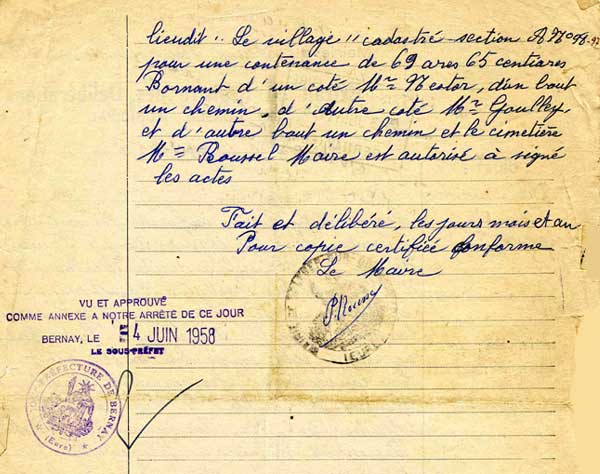 lieudit " Le village " cadastré section A N° 98.
pour une contenance de 69 ares 65 centiares
Bornant d'un coté Mr Nestor, d'un bout
un chemin, d'Autre coté Mr Goulley,
et d'autre bout un chemin et le cimetière
Mr Roussel Maire est autorisé à signé
les actes
Fait et délibéré, les jours mois et an
Pour copie certifiée Conforme
Le Maire
VU ET APPROUVÉ
COMME ANNEXE A NOTRE ARRÊTÉ DE CE JOUR
BERNAY, LE 4 JUIN 1958
LE SOUS-PRÉFET
SOUS-PRÉFECTURE DE BERNAY
(Eure)